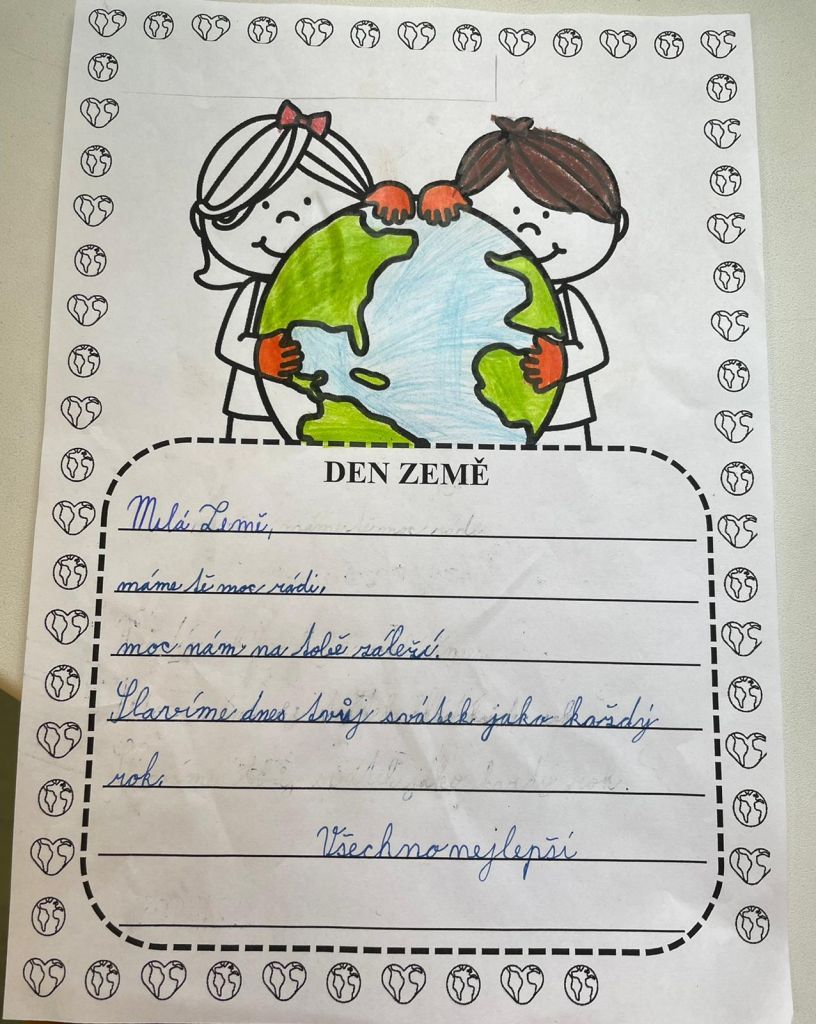 DEN ZEMĚ
Milá Země,
máme tě moc rádi,
moc nám na tobě záleží.
Slavíme dnes tvůj svátek jako každý
rok.
Všechno nejlepší